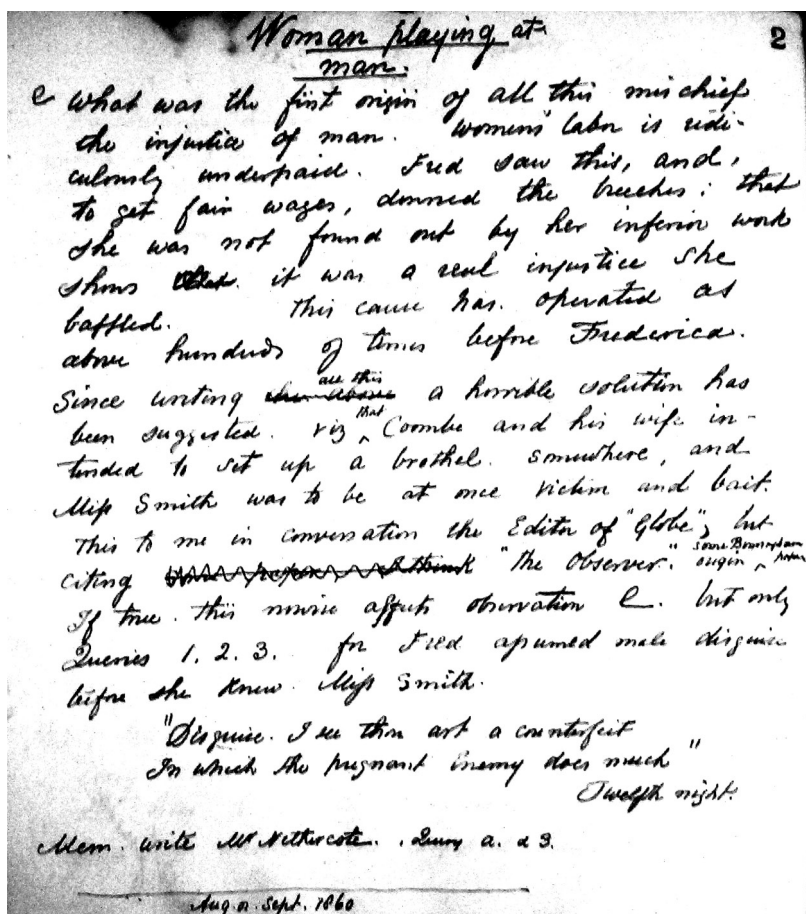 Woman playing at 2
man.
e What was the first origin of all this mischief
the injustice of man. Women's labor is ridi-
culously underpaid. Fred saw this, and,
to get fair wages, donned the breeches: that
she was not found out by her inferior work
shows it was a real injustice she
baffled. This cause has operated as
above hundreds of times before Frederica.
Since writing all this a horrible solution has
been suggested. viz that Coombe and his wife in-
tended to set up a brothel somewhere, and
Miss Smith was to be at once victim and bait.
This to me in conversation the Editor of "Globe", but
citing "The Observer". some Birmingham
origin,
If true this nowise affects observation C. but only
Queries 1. 2. 3. for Fred assumed male disguise
before she knew Miss Smith.
"Disguise. I see thou art a counterfeit
In which the pregnant Enemy does much"
Twelfth night.
Mem. write Mr Nethercote. Query a. & 3.
Aug or Sept. 1860